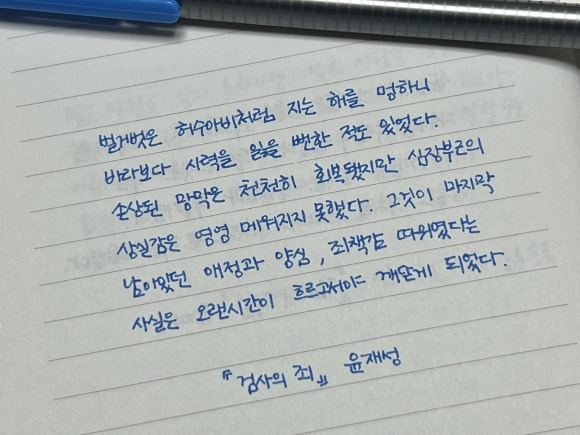 벌거벗은 허수아비처럼 지는 해를 멍하니
바라보다 시력을 잃을 뻔한 적도 있었다.
손상된 망막은 천천히 회복됐지만 심장부근의
상실감은 영영 메워지지 못했다. 그것이 마지막
남아있던 애정과 양심, 죄책감 따위였다는
사실은 오랜시간이 흐르고서야 깨닫게 되었다.
『검사의 죄』 윤재성